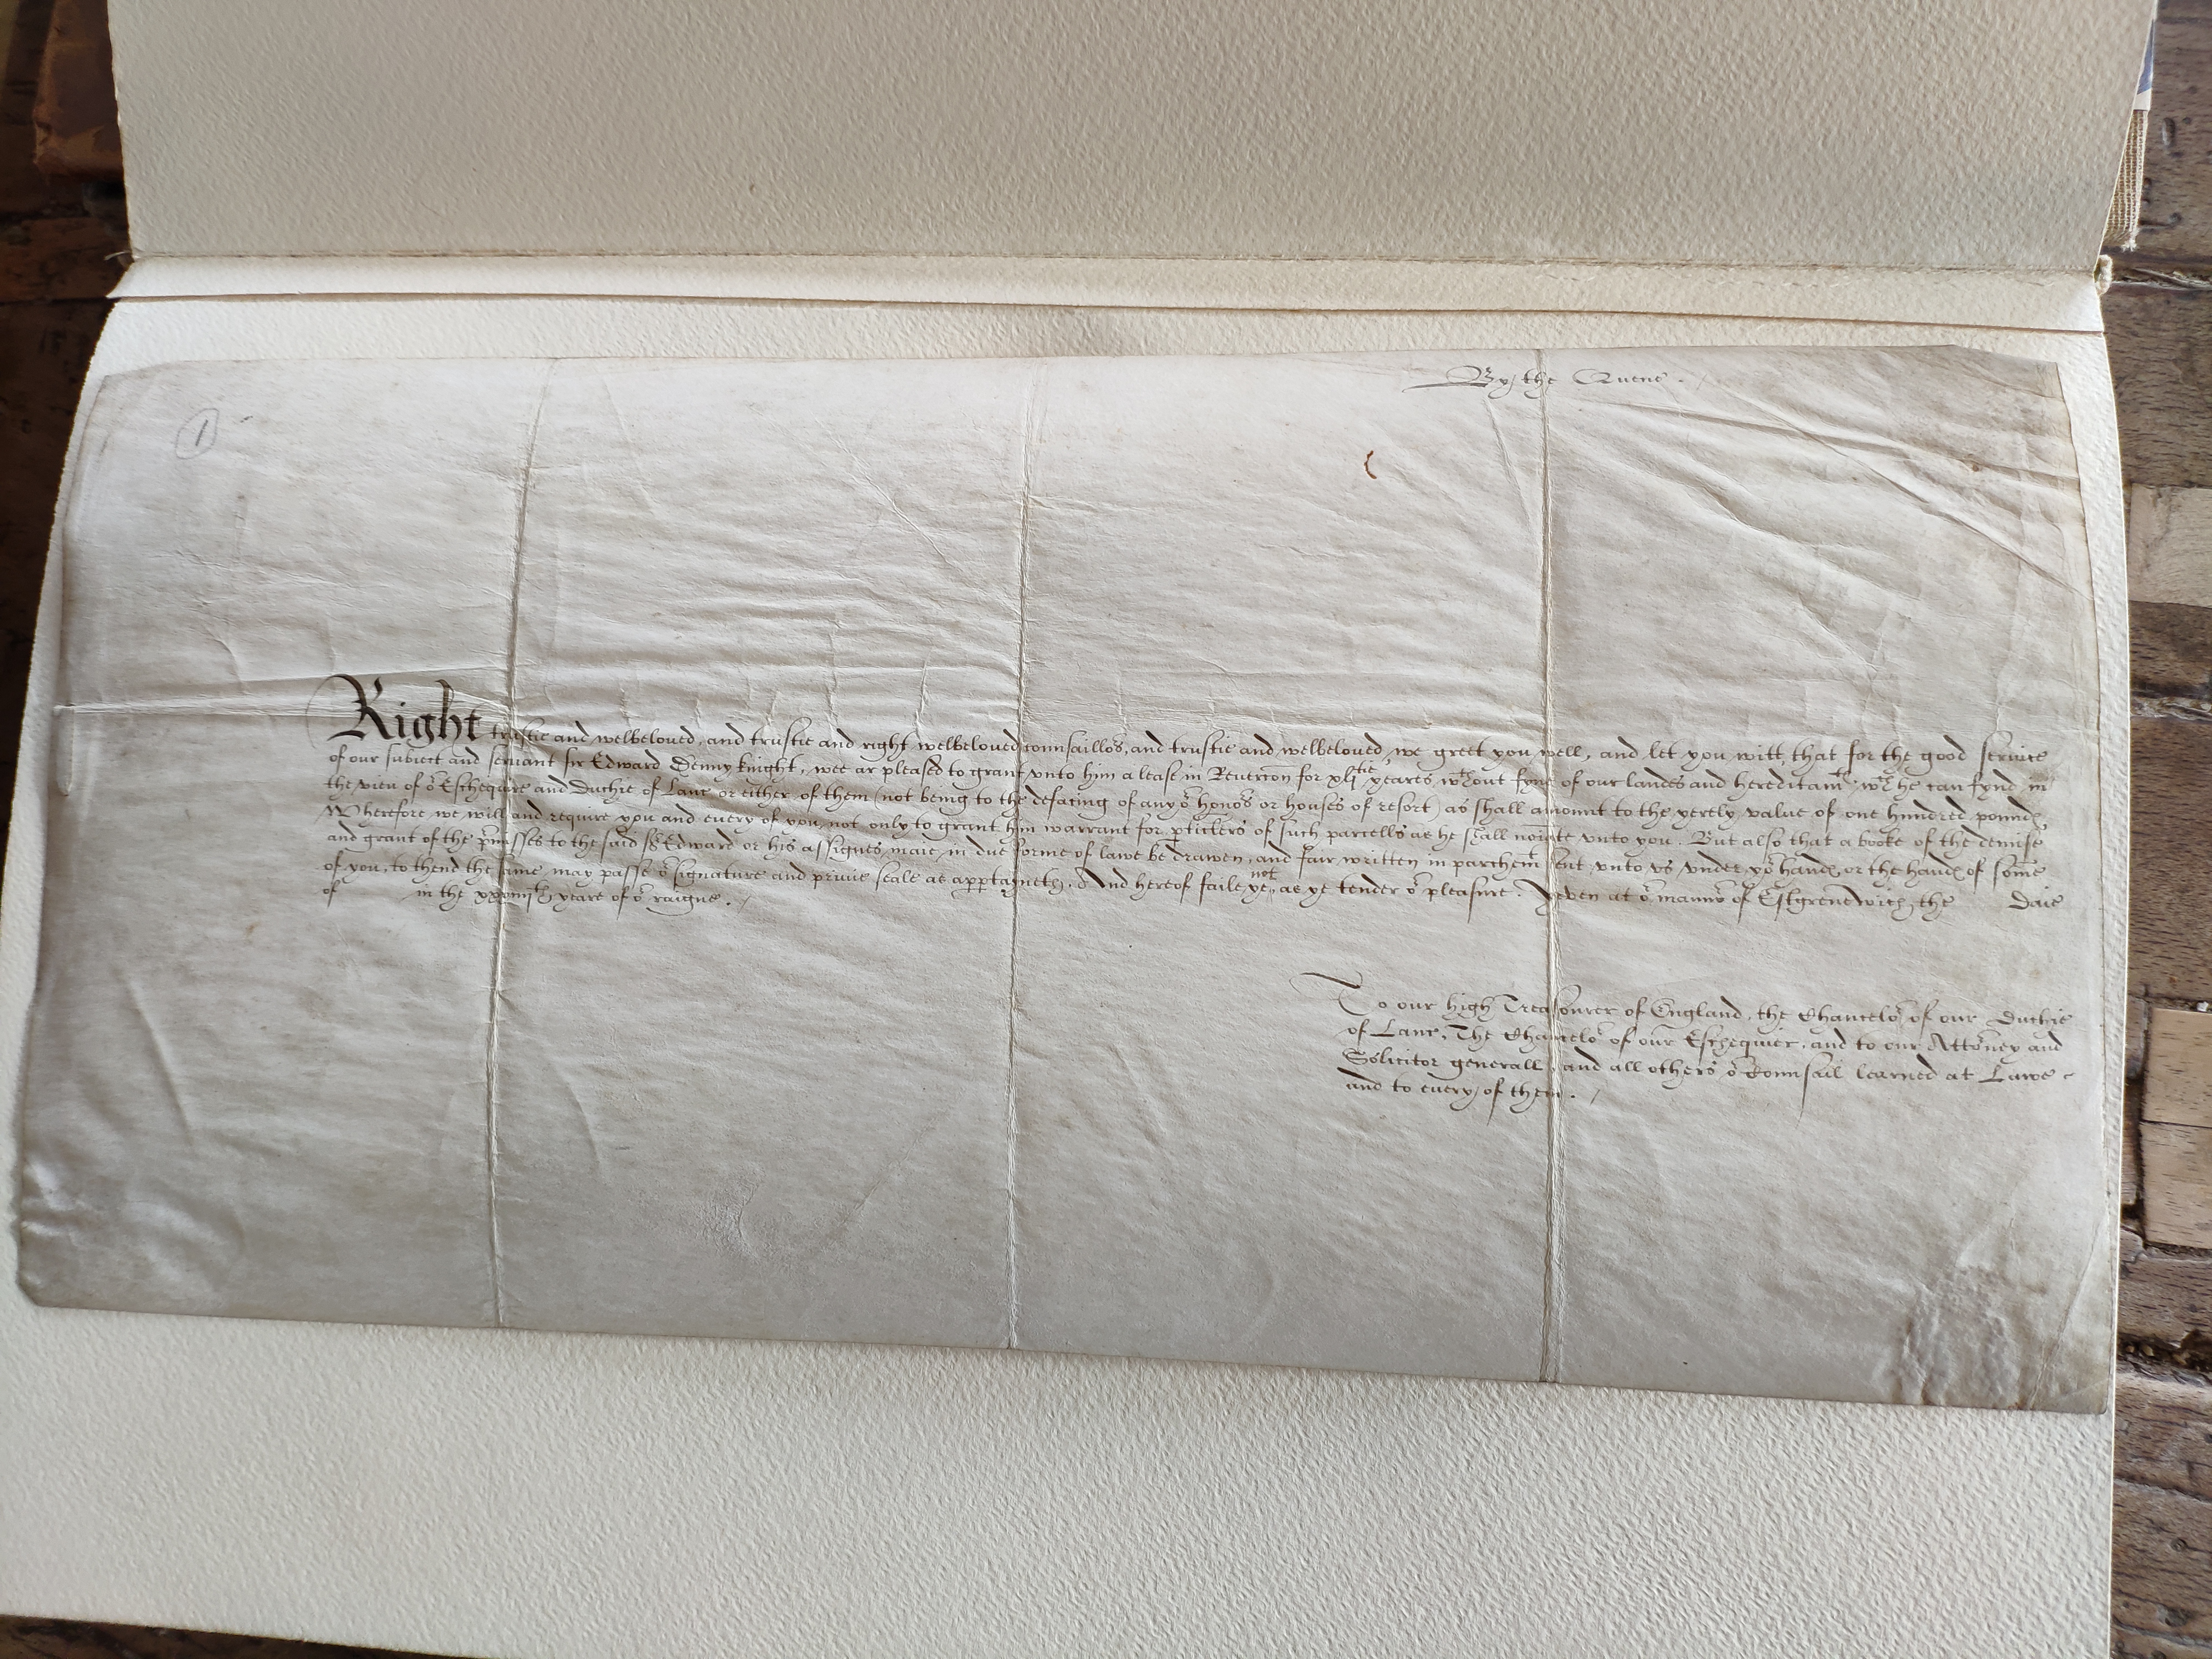 By the Quene.
1
Right trustie and welbeloved, and trustie and right welbeloved counsaillors, and trustie and welbeloved, we greet you well, and let you witt, that for the good service
of our subiect and servant Sir Edward Denny knight, wee ar pleased to grant unto him a lease in Reuercon for xl^tie yeares, w^thout fyne of our landes and hereditam^tes, w^ch he can fynd in
the view of o^r Eschequire and Duchie of Lanc or either of them (not being to the defacing of any o^r honors or houses of resort) as shall amount to the yerely value of one hundred pound
Wherefore we will and require you and every of you, not only to grant him warrant for pticlers of such parcells as he shall noiate unto you. But also that a booke of the demise
and grant of the pmisses to the said S^r Edward or his assignes, maie in due forme of lawe be drawen, and fair written in parchem^t sent unto us under yo^r hand or the hand of some
of you, to thend the same may passe o^r signature and privie seale as appertayneth. And hereof faile ye not, as ye tender o^r pleasure. Yeven at o^r mannor of Estgrenewich, the daie
of in the year of o^r raigne.
To our high Treasourer of England, the Chancelor of our Duchie
of Lanc, The Chancelor of our Eschequier, and to our Attorney and
Solicitor generall, and all others o^r Counsail learned at Lawe
and to every of them.